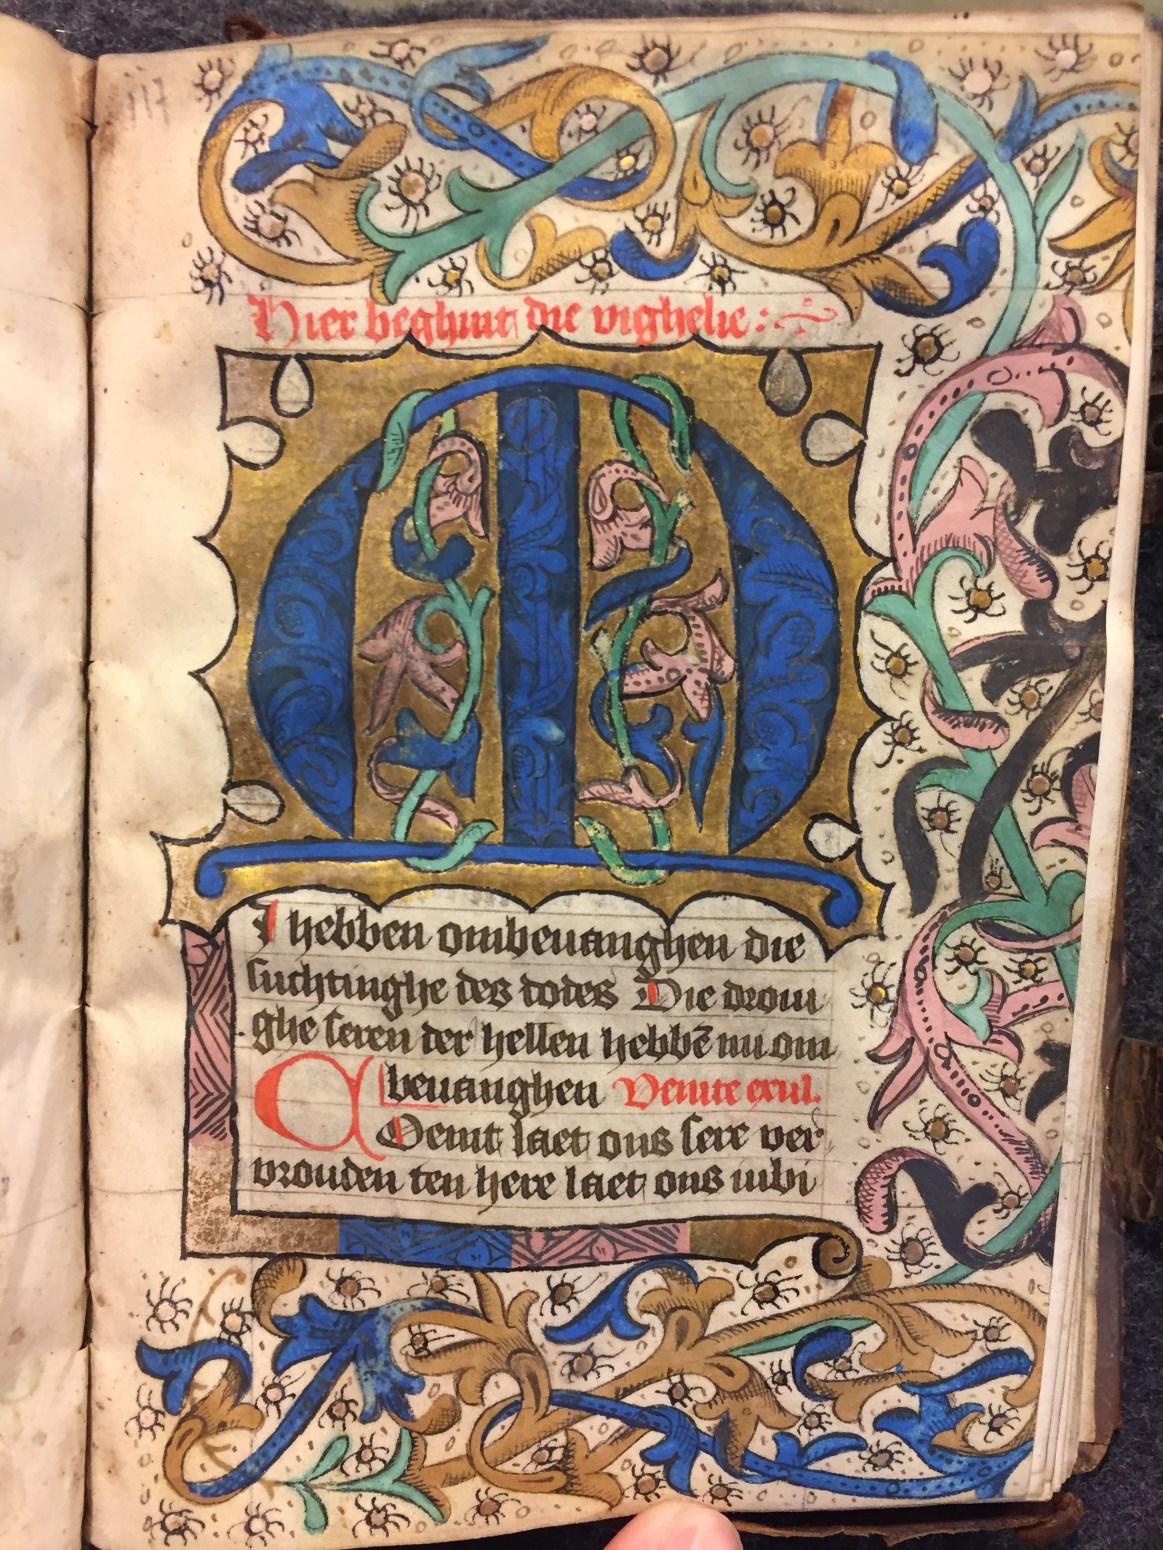 117
Hier beghint die vighelie:
M
I hebben ombeuanghen die
suchtinghe des dodes Die droui
ghe seren der hellen hebbē mi om
beuanghen Venite exul.
Comt laet ons sere ver
vrouden ten here laet ons iubi